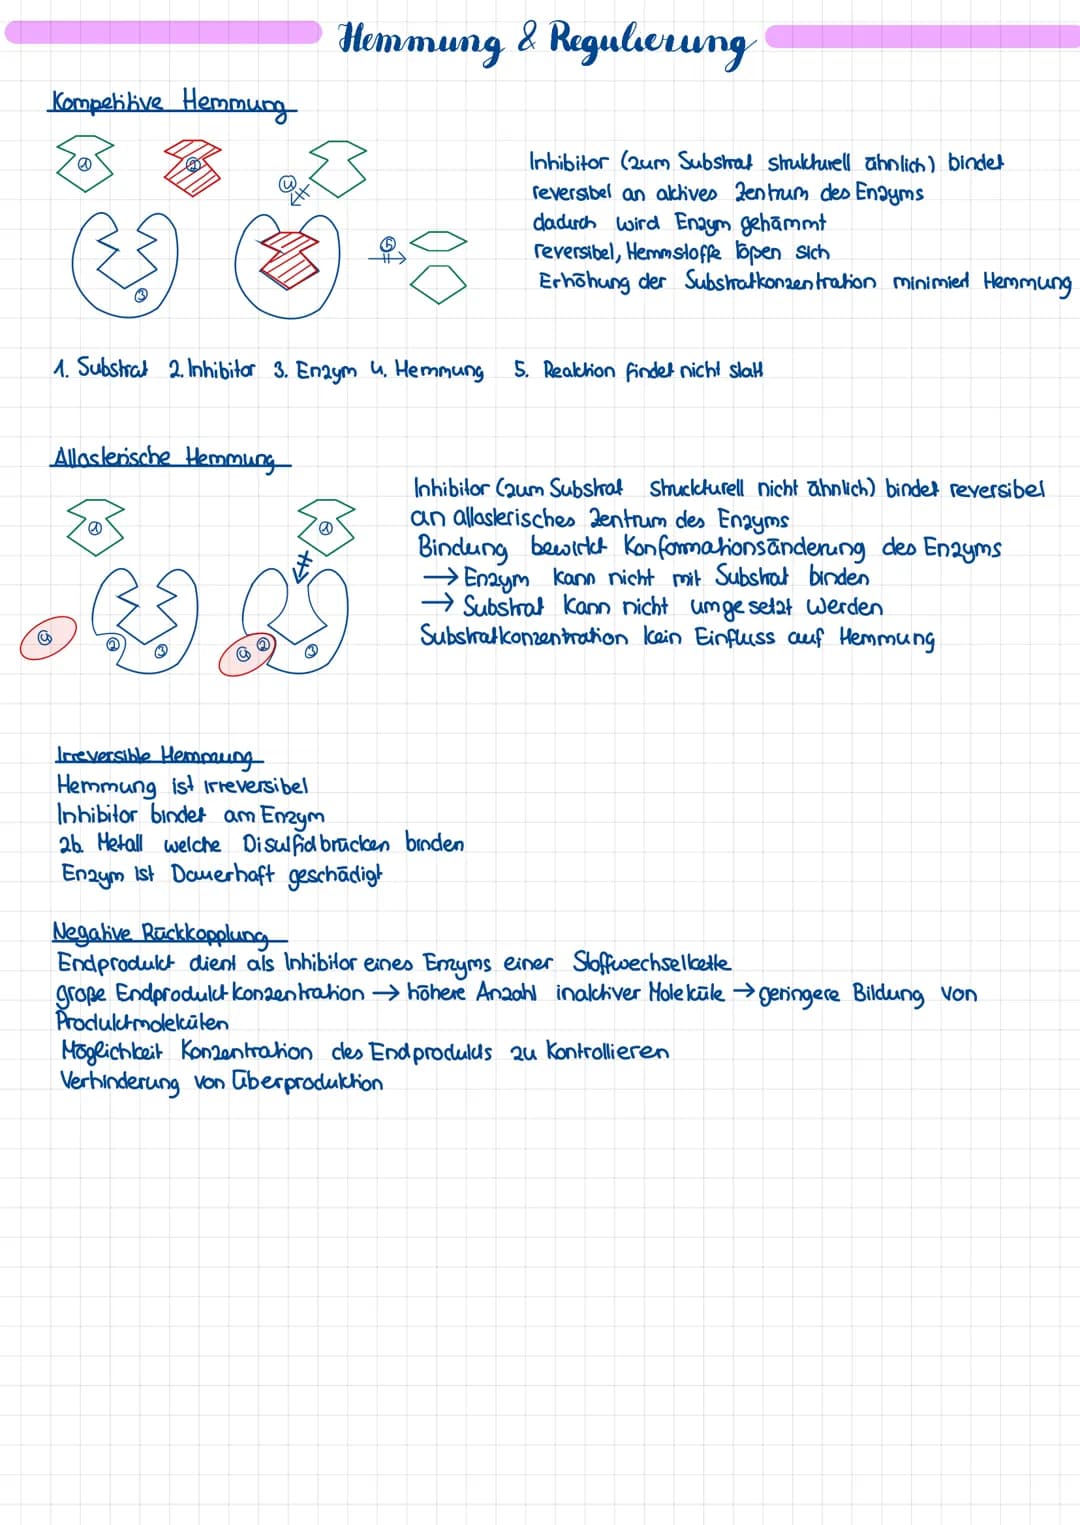 Hemmung & Regulierung
Kompetitive Hemmung
1
2
4
3
5
Inhibitor (zum Substrat strukturell ähnlich) bindet
reversibel an aktives Zentrum des Enzyms
dadurch wird Enzym gehämmt
reversibel, Hemmstoffe lößen sich
Erhöhung der Substratkonzentration minimied Hemmung
1. Substrat 2. Inhibitor 3. Enzym 4. Hemmung 5. Reaktion findet nicht statt
Allosterische Hemmung
1
1
4
2
3
4
2
3
Inhibitor (zum Substrat struckturell nicht ähnlich) bindet reversibel
an allosterisches Zentrum des Enzyms
Bindung bewirkt Konformationsänderung des Enzyms
→ Enzym kann nicht mit Substrat binden
→ Substrat kann nicht umgesetzt werden
Substratkonzentration kein Einfluss auf Hemmung
Irreversible Hemmung
Hemmung ist irreversibel
Inhibitor bindet am Enzym
zb. Metall welche Disulfidbrücken binden
Enzym ist Dauerhaft geschädigt
Negative Rückkopplung
Endprodukt dient als Inhibitor eines Enzyms einer Stoffwechselkette
große Endproduktkonzentration → höhere Anzahl inaktiver Moleküle → geringere Bildung von
Produktmolekülen
Möglichkeit Konzentration des Endprodukts zu kontrollieren
Verhinderung von Überproduktion